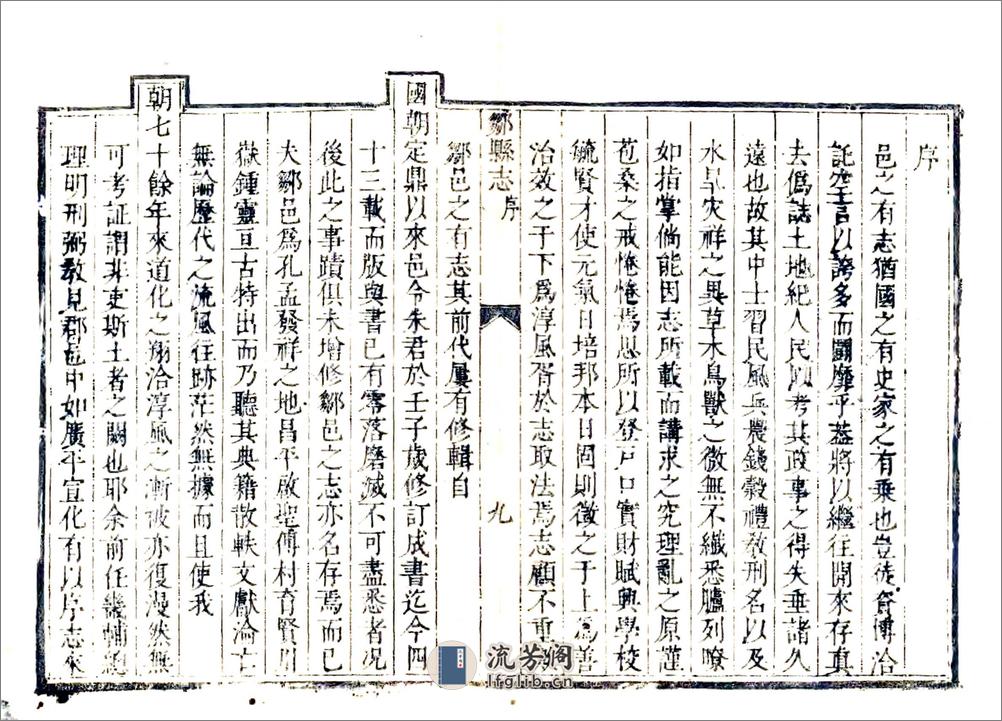 序
邑之有志猶國之有史家之有乘也豈徒奢博洽
託空言以誇多而鬬靡乎葢將以繼往開來存真
去僞誌土地紀人民以考其政事之得失垂諸久
遠也故其中士習民風兵農錢穀禮教刑名以及
水旱灾祥之異草木鳥獸之微無不纎悉臚列瞭
如指掌倘能因志所載而講求之究理亂之原謹
苞桑之戒惓惓焉思所以登戸口實財賦興學校
毓賢才使元氣日培邦本日固則徵之于上爲善
治效之于下爲淳風胥於志取法焉志顧不重
鄒縣志 序 九
鄒邑之有志其前代屢有修輯自
國朝定鼎以來邑令朱君於壬子歲修訂成書迄今四
十三載而版與書已有零落磨滅不可盡悉者况
後此之事蹟俱未增修鄒邑之志亦名存焉而已
夫鄒邑爲孔孟發祥之地昌平啟聖傅村育賢川
嶽鍾靈亘古特出而乃聽其典籍散軼文獻淪亡
無論歷代之流風往跡茫然無據而且使我
朝七十餘年來道化之翔洽淳風之漸被亦復漫然無
可考証謂非吏斯土者之闕也耶余前任畿輔
理明刑弼教見郡邑中如廣平宣化有以序志來
流芳閣
lfglib.cn